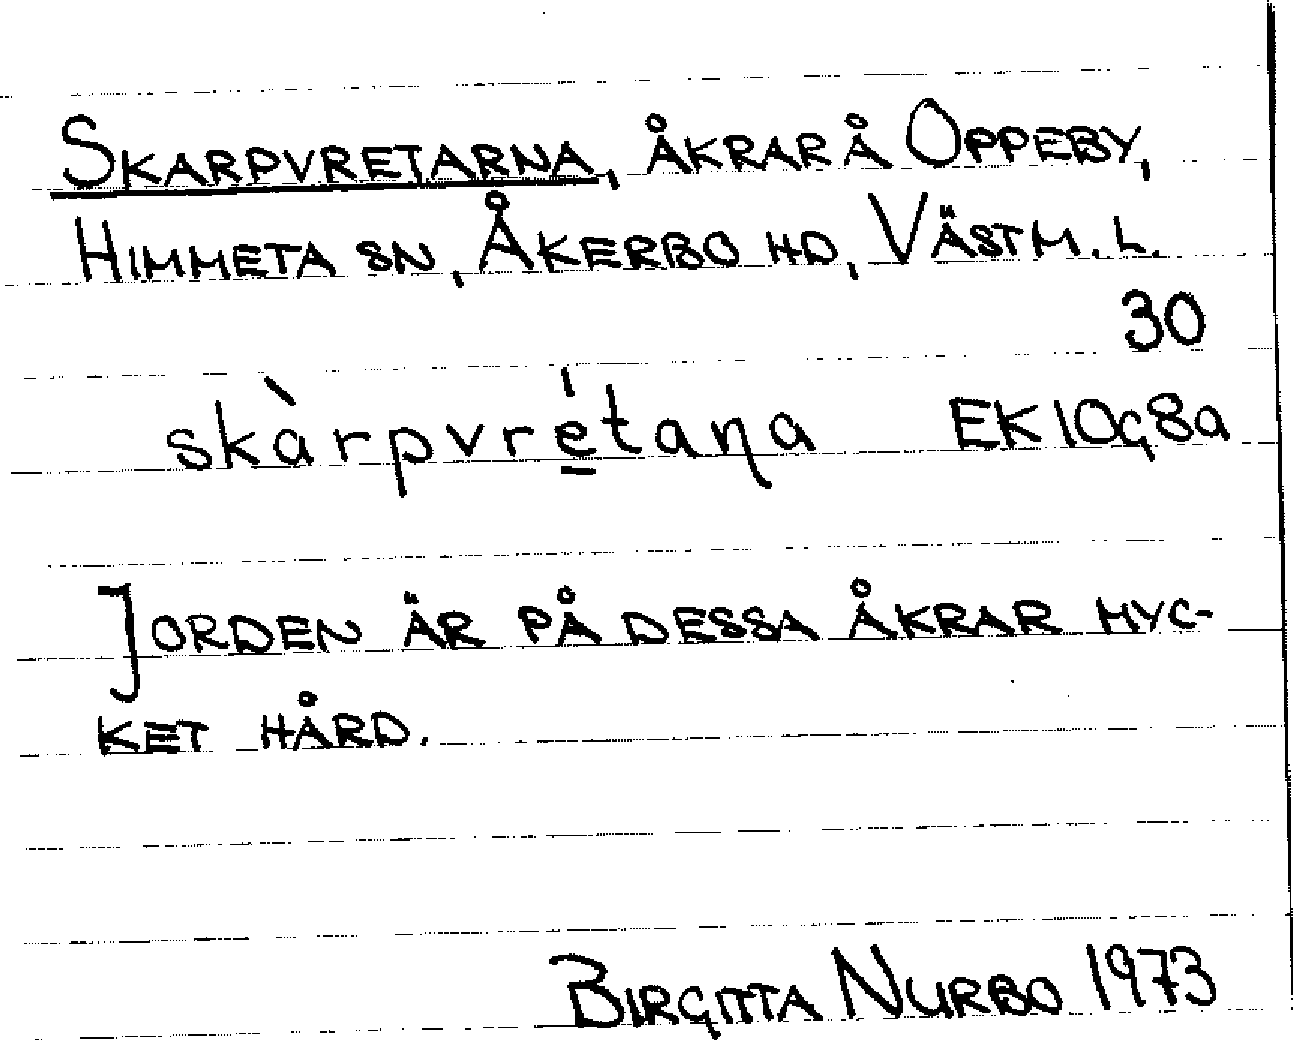 Skarpvretarna, åkrar å Oppeby,
Himmeta sn, Åkerbo hd, Västm. l.
30
skàrpvré̱taṇa EK10g8a
Jorden är på dessa åkrar myc-
ket hård.
Birgitta Nurbo 1973